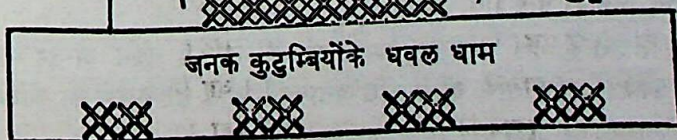 जनक कुटुम्बियोंके धवल धाम